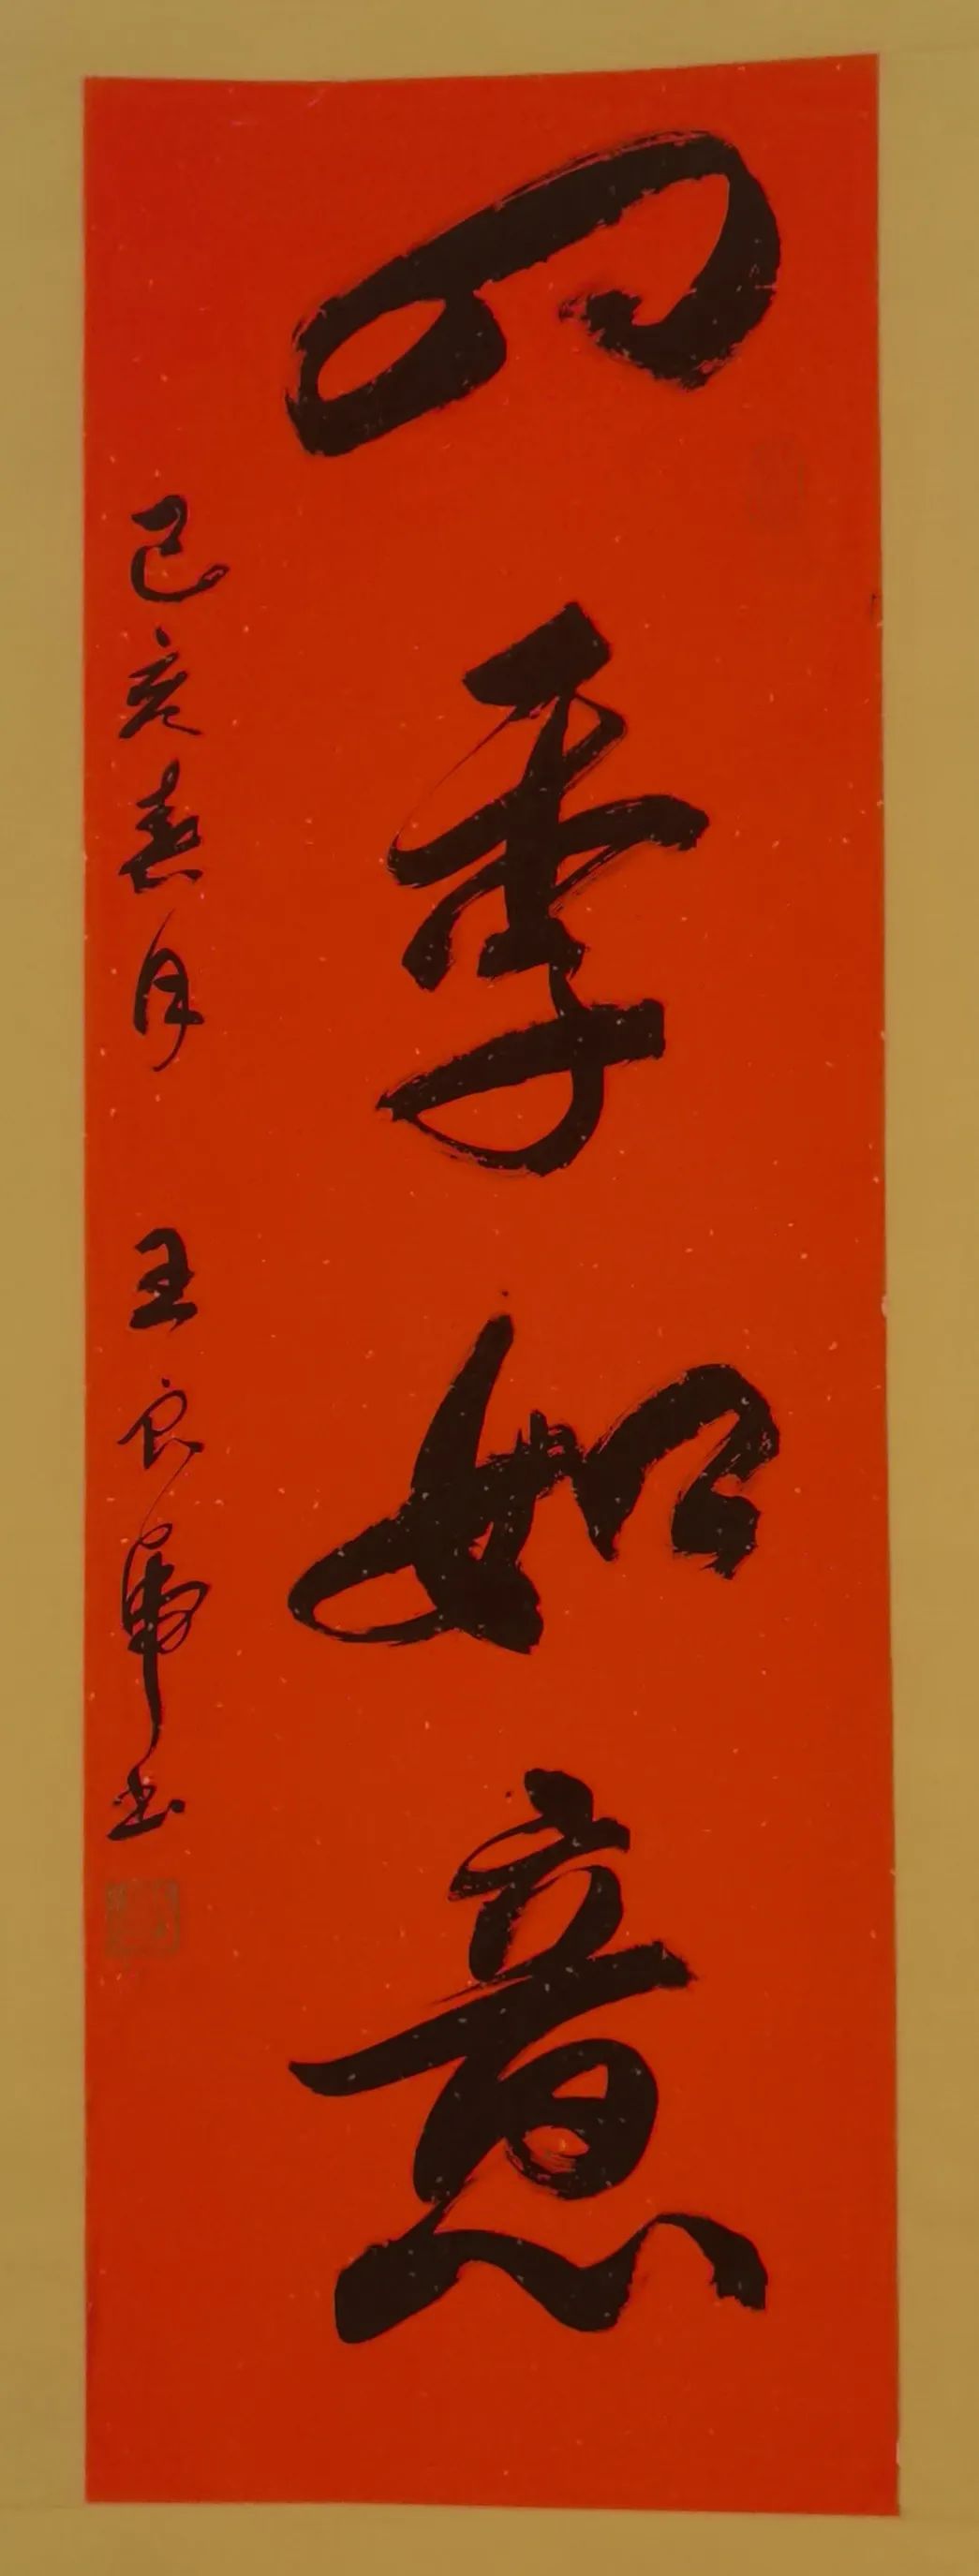 四季如意
己亥春月 王良虎书